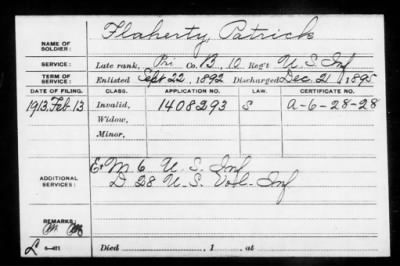 Flaherty, Patrick
NAME OF SOLDIER:
SERVICE: Late rank, Pri Co. B, 10 Reg't U.S. Inf
TERM OF SERVICE: Enlisted Sept 22, 1892 Discharged Dec. 21, 1895
DATE OF FILING. CLASS. APPLICATION NO. LAW. CERTIFICATE NO.
1913. Feb. 13 Invalid, 1408293 S A-6-28-28
Widow,
Minor,
ADDITIONAL SERVICES: E & M 6 U.S. Inf
D 28 U.S. Vol. Inf
REMARKS:
L Died , 1 , at